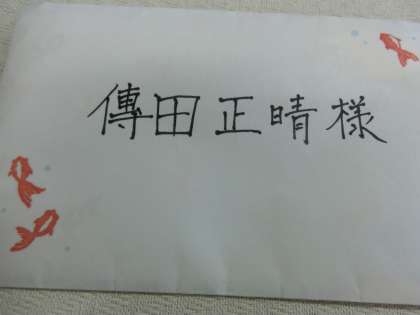 傳田正晴様